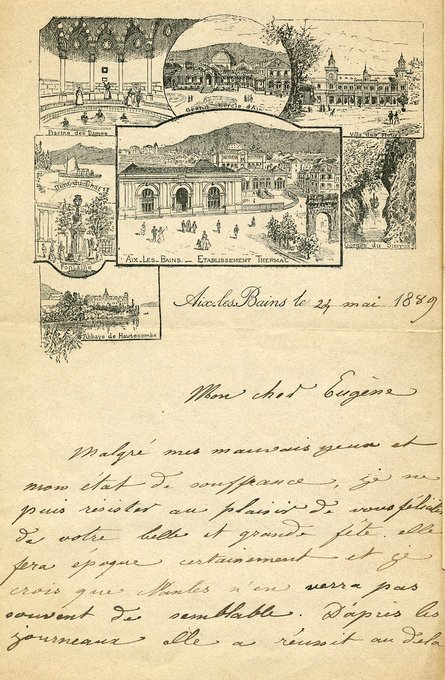 Piscine des Dames
Grand Cercle d'Aix
Ville des Fleurs
Dent du Chat
Fontaine
Aix-les-Bains _ Etablissement Thermal
Gorges du Sierroz
Abbaye de Hautecombe
Aix-les-Bains le 24 mai 1889
Mon cher Eugène
Malgré mes mauvais yeux et
mon état de souffrance, je ne
puis résister au plaisir de vous félicite
de votre belle et grande fête. elle
fera époque certainement et je
crois que Nantes n'en verra pas
souvent de semblable. D'après les
journeaux elle a réussit au dela